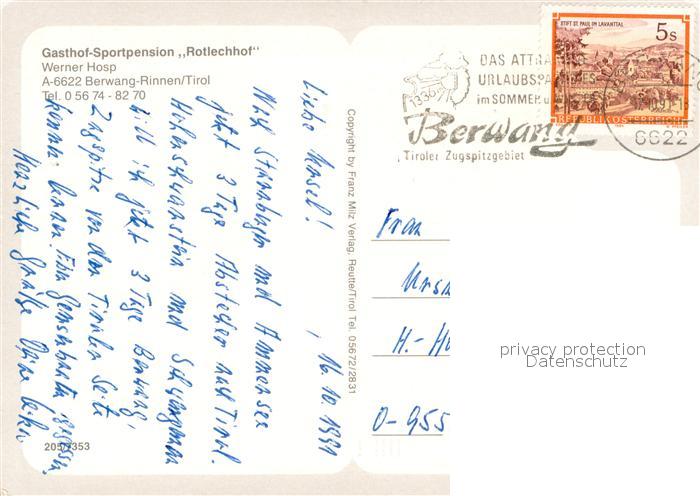 Gasthof-Sportpension „Rotlechhof“
Werner Hosp
A-6622 Berwang-Rinnen/Tirol
Tel. 0 56 74 - 82 70
, 16.10.1991
Liebe
und Ammersee
jetzt 3 Tage Abstecher nach Tirol.
Hohenschwanstein und
will ich jetzt 3 Tage Berwang,
Zugspitze von der Tiroler Seite
kennen lernen.
Herzliche Grüße
205/7353
Copyright by Franz Milz Verlag, Reutte/Tirol Tel. 05672/2831
1336m
DAS ATTRA
URLAUBSPA
im SOMMER u
Berwang
Tiroler Zugspitzgebiet
STIFT ST. PAUL IM LAVANTTAL
5s
REPUBLIK ÖSTERREICH
6622
Frau
Urs
H.-H
O-955
privacy protection
Datenschutz